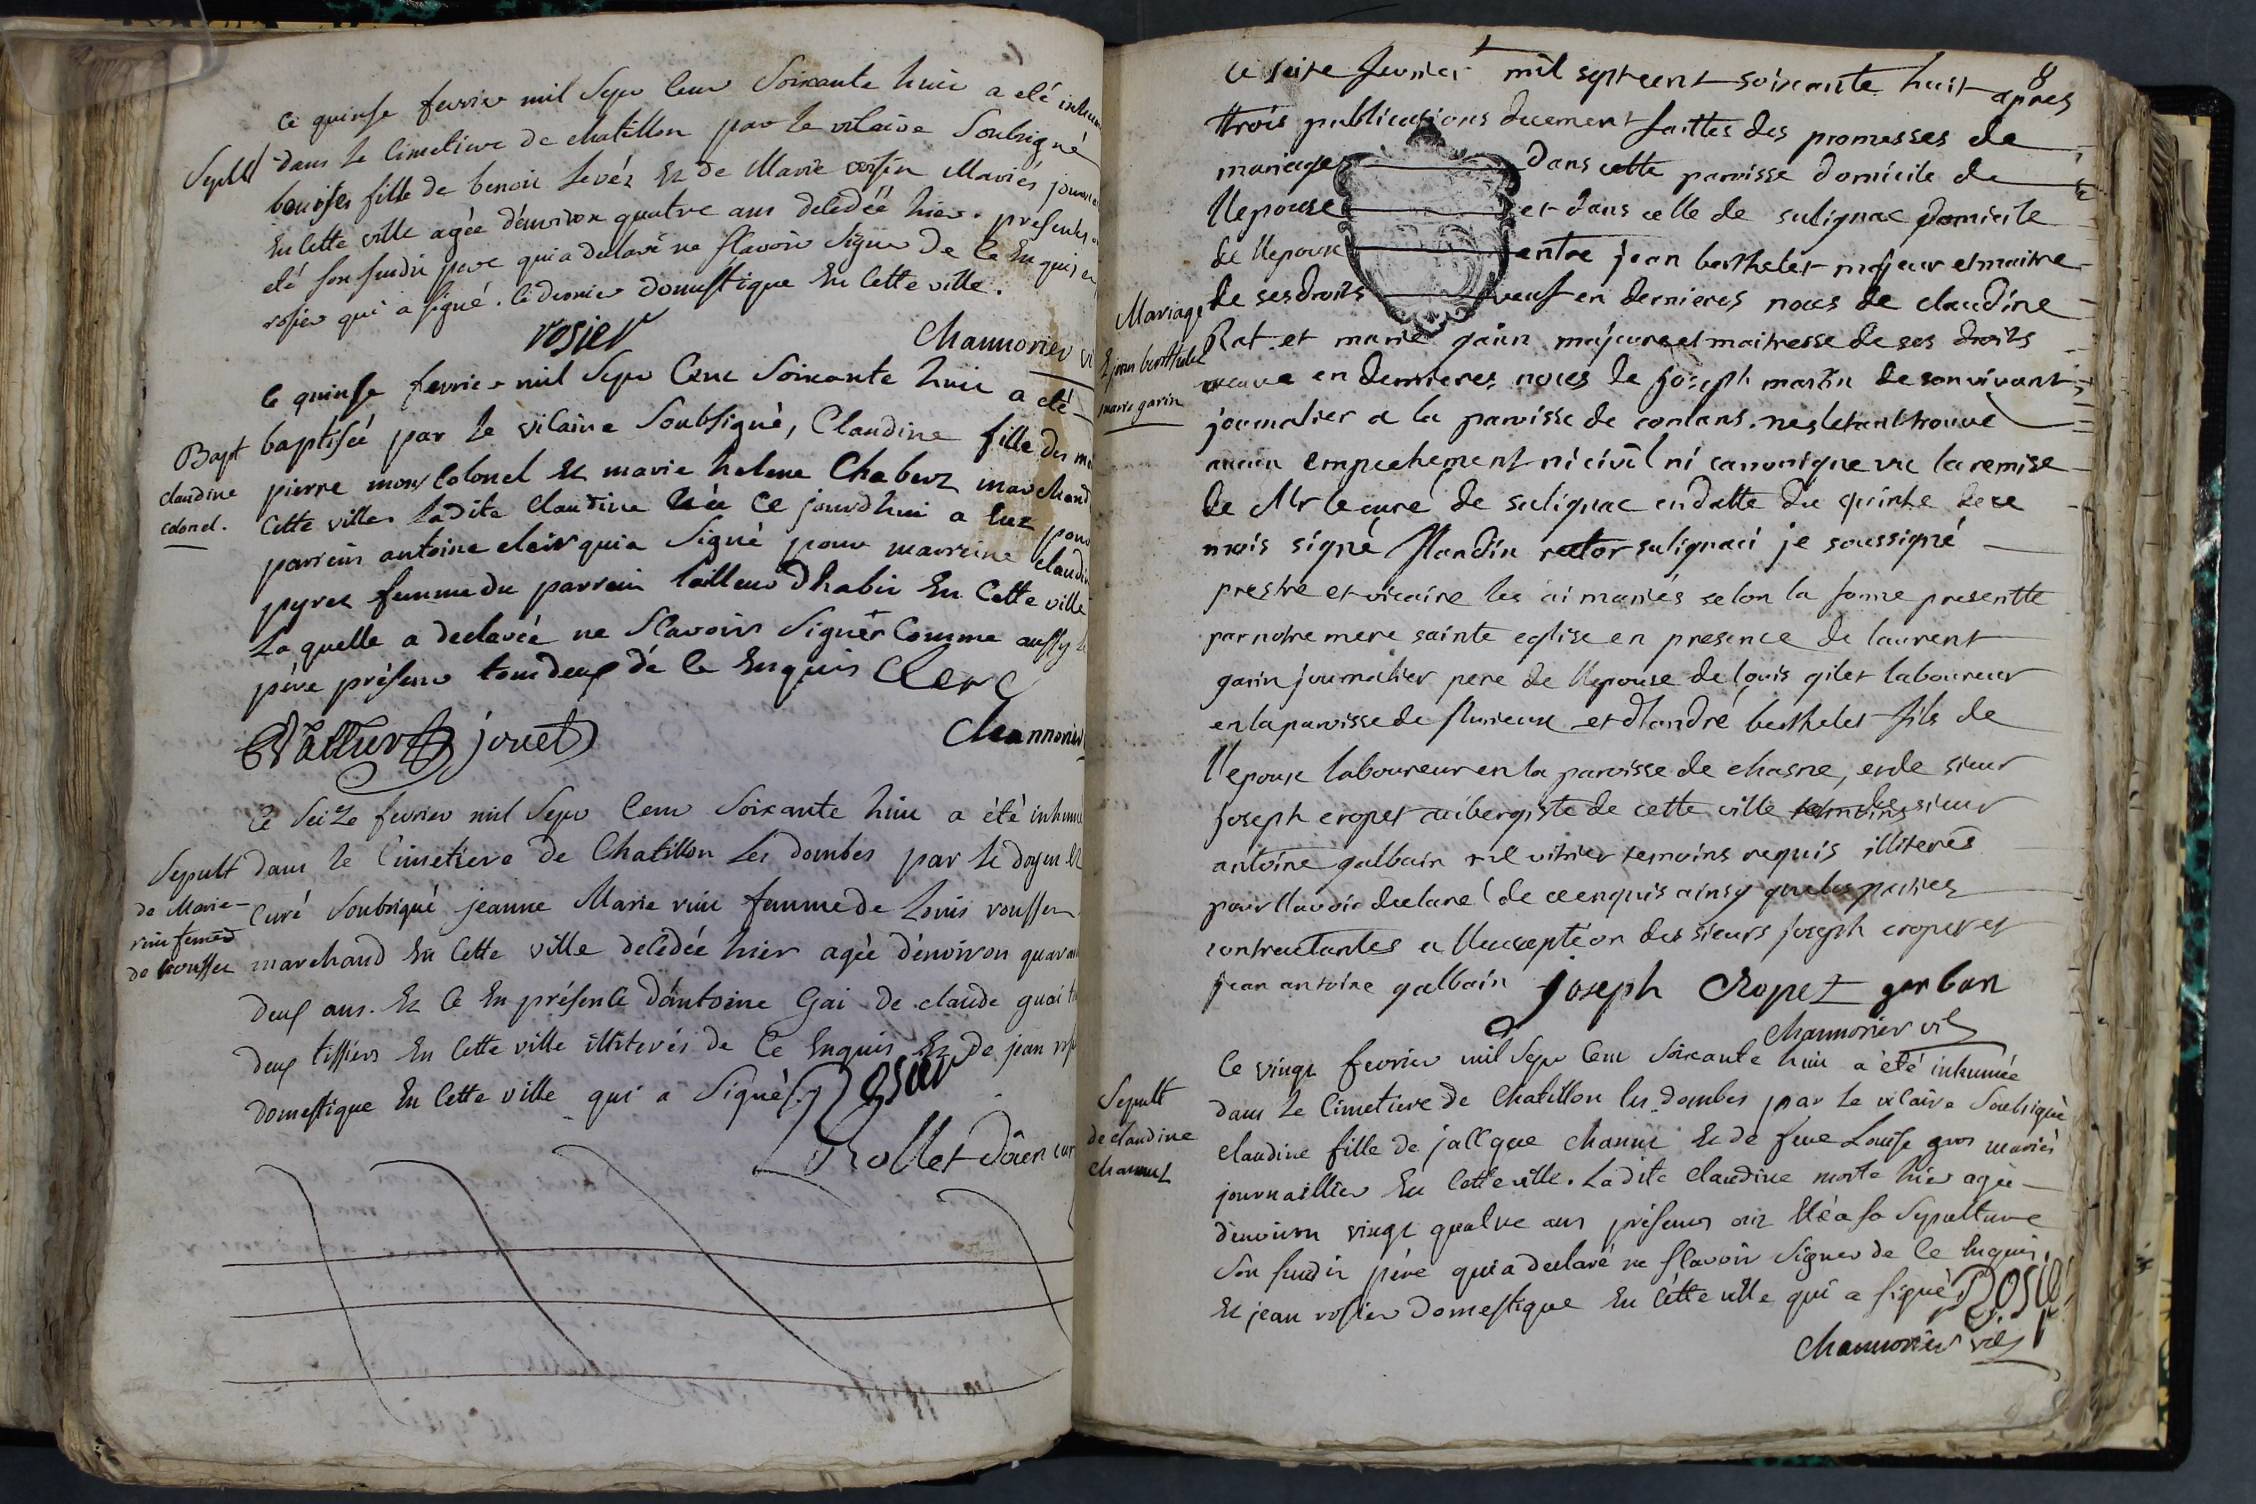 ce quinse fevrier mil Sept Cent Soixante huit a eté
Sepult dans le Cimetiere de chatillon par le vicaire Soubsigné
fille de benoit et de Marie Mariés
En Cette ville agée d'environ quatre ans decedée hier. presents
eté son susdit pere qui a declaré ne Scavoir Signer de Ce Enquis et
rosier qui a signé. le dernier domestique En Cette ville.
rosier Channorier
Ce quinse fevrier mil Sept Cent Soixante huit a eté
Bapt
claudine
colonel.
baptisée par le vicaire Soubsigné, Claudine fille du
pierre colonel Et marie helene Chabert marchand
Cette ville. Ladite Claudine née Ce jourdhui a Eut pour
parrein antoine clair qui a Signé pour marreine claudine
pyret femme du parrein tailleur d'habit En Cette ville
La quelle a declarée ne Scavoir Signer Comme aussy le
père présent tous deux de Ce Enquis Clerc
jouet Channorier
Ce Seize fevrier mil Sept Cent Soixante huit a été
Sepult
de Marie
femme
de
dans le Cimetiere de Chatillon Les dombes par le doyen Et
Curé Soubsigné jeanne Marie femme de Louis
marchand En Cette ville decedée hier agée d'environ
deux ans. Et Ce En présence d'antoine Gai de claude
deux tissiers En Cette ville illiterés de Ce Enquis Et de jean
domestique En Cette ville qui a Signés. Rosier
Rollet Doien
8
ce seize fevrier mil sept cent soixante huit apres
trois publications duement faittes des promesses de
mariage dans cette paroisse domicile de
l'epouse et dans celle de sulignac domicile
de l'epoux entre jean berthelet majeur et maitre
de ses droits veuf en dernieres noces de claudine
Mariage
d jean berthelet
marie garin
Rat et marie garin majeure et maitresse de ses droits
veuve en dernieres noces de joseph martin de son vivant
journalier a la paroisse de conlans. ne s'etant trouvé
aucun empechement ni civil ni canonique vu la remise
de Mr le curé de sulignac en datte du quinze de ce
mois signé Nandin rector sulignaci je soussigné
prestre et vicaire les ai mariés selon la forme presentte
par notre mere sainte eglise en presence de laurent
garin journalier pere de l'epouse de louis gilet laboureur
en la paroisse de flurieux et d'andré berthelet fils de
l'epoux laboureur en la paroisse de chasne, et de sieur
joseph cropet aubergiste de cette ville sieur
antoine galbain vitrier temoins requis illiterés
pour l'avoir declaré de ce enquis ainsy que les parties
contractantes a l'exception des sieurs joseph cropet et
jean antoine galbain joseph Cropet garban
Channorier vic
Ce vingt fevrier mil Sept Cent Soixante huit a été inhumée
Sepult
de claudine
channet
dans le Cimetiere de Chatillon les dombes par le vicaire Soubsigné
claudine fille de jacque channet Et de feue Louise gros mariés
journaillier En Cette ville. Ladite Claudine morte hier agée
d'environ vingt quatre ans présents ont été a sa Sepulture
Son susdit père qui a declaré ne scavoir Signer de Ce Enquis
Et jean rosier domestique En Cette ville qui a signé Rosier
Channorier vic